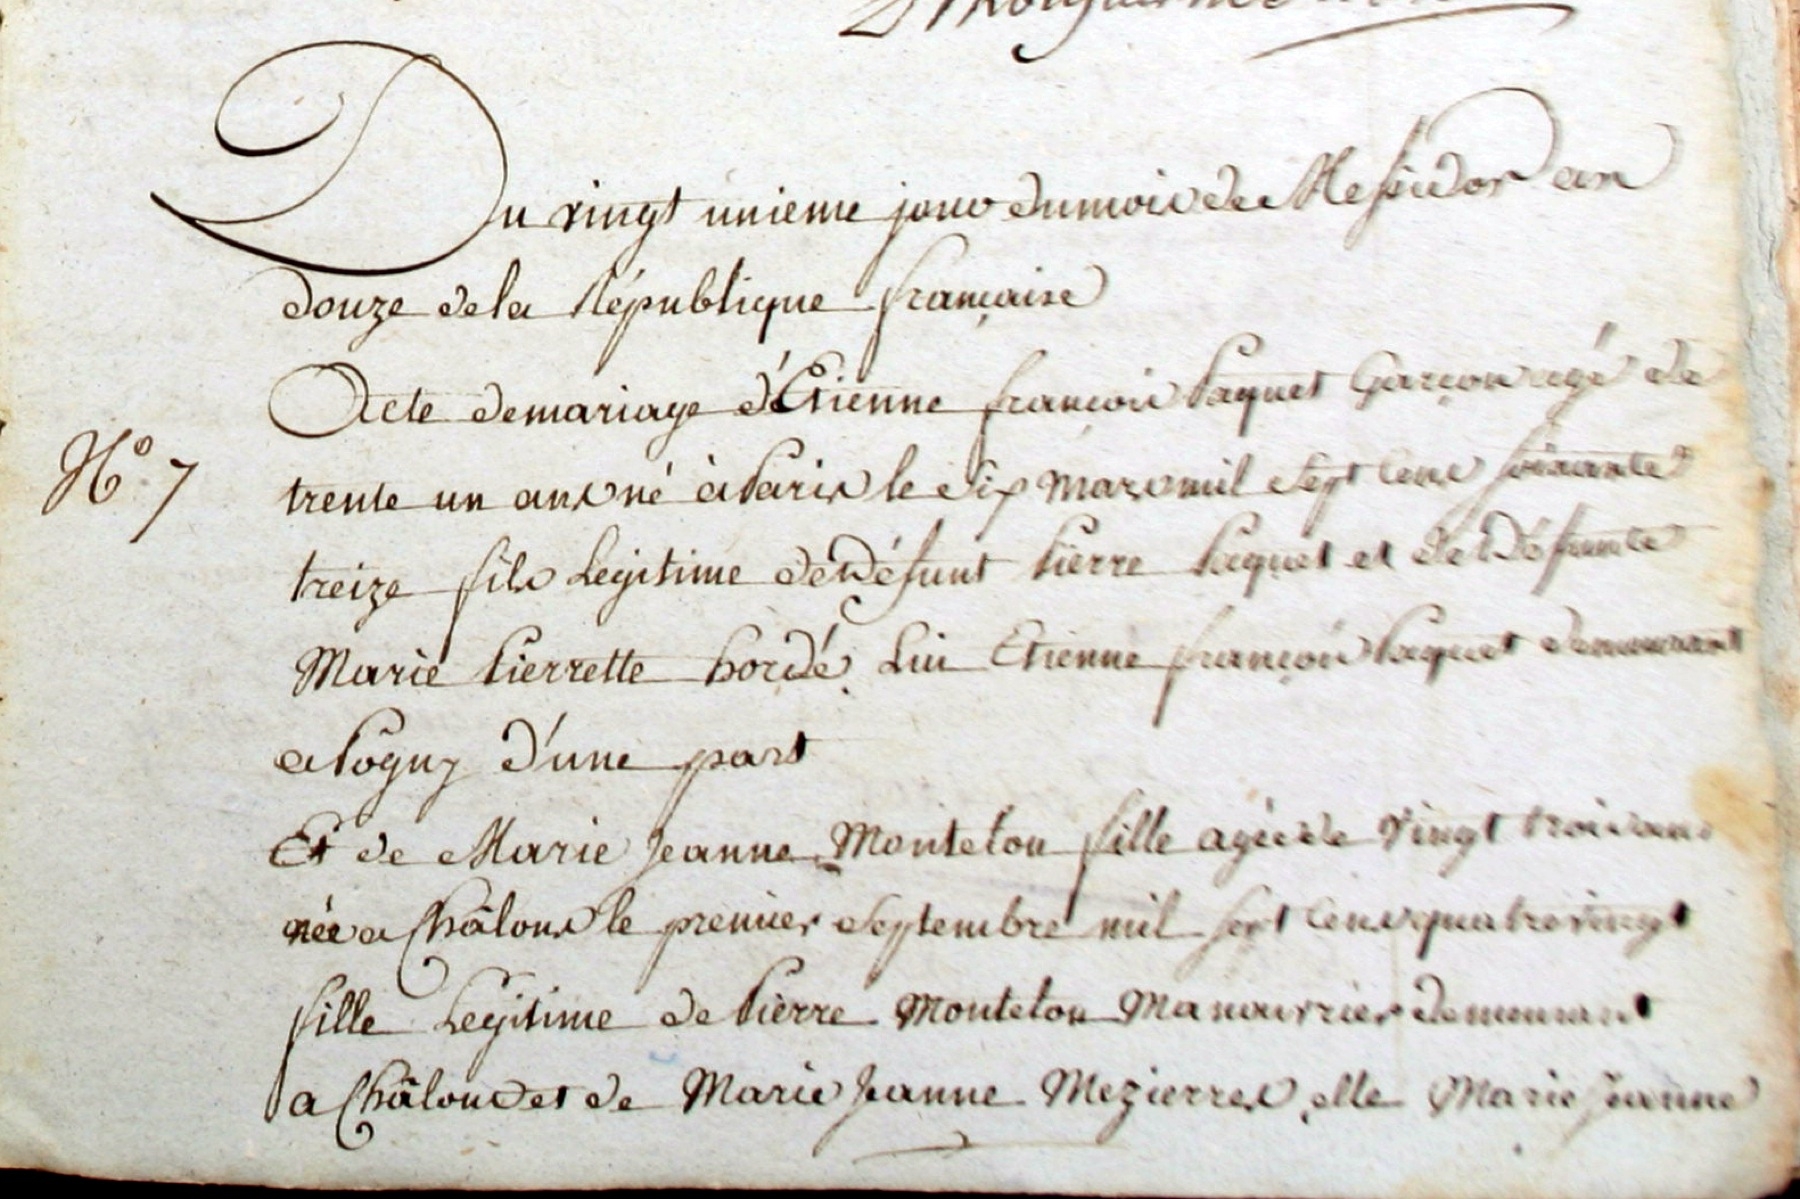 Du vingt unieme jour du mois de Messidor an
douze de la République française
Acte de mariage d'Etienne françois Paquet Garçon agé de
N° 7
trente un ans né à Paris le Six Mars mil Sept Cent soixante
treize fils Legitime de Défunt Pierre Paquet et de Défunte
Marie Pierrette hordé Lui Etienne françois Paquet demeurant
a Pogny d'une part
Et de Marie Jeanne Monteton fille agée de Vingt trois ans
née a Châlons le premier Septembre mil sept Cens quatre vingt
fille Legitime de Pierre Monteton Manouvrier demeurant
a Châlons et de Marie Jeanne Mezierres elle Marie Jeanne